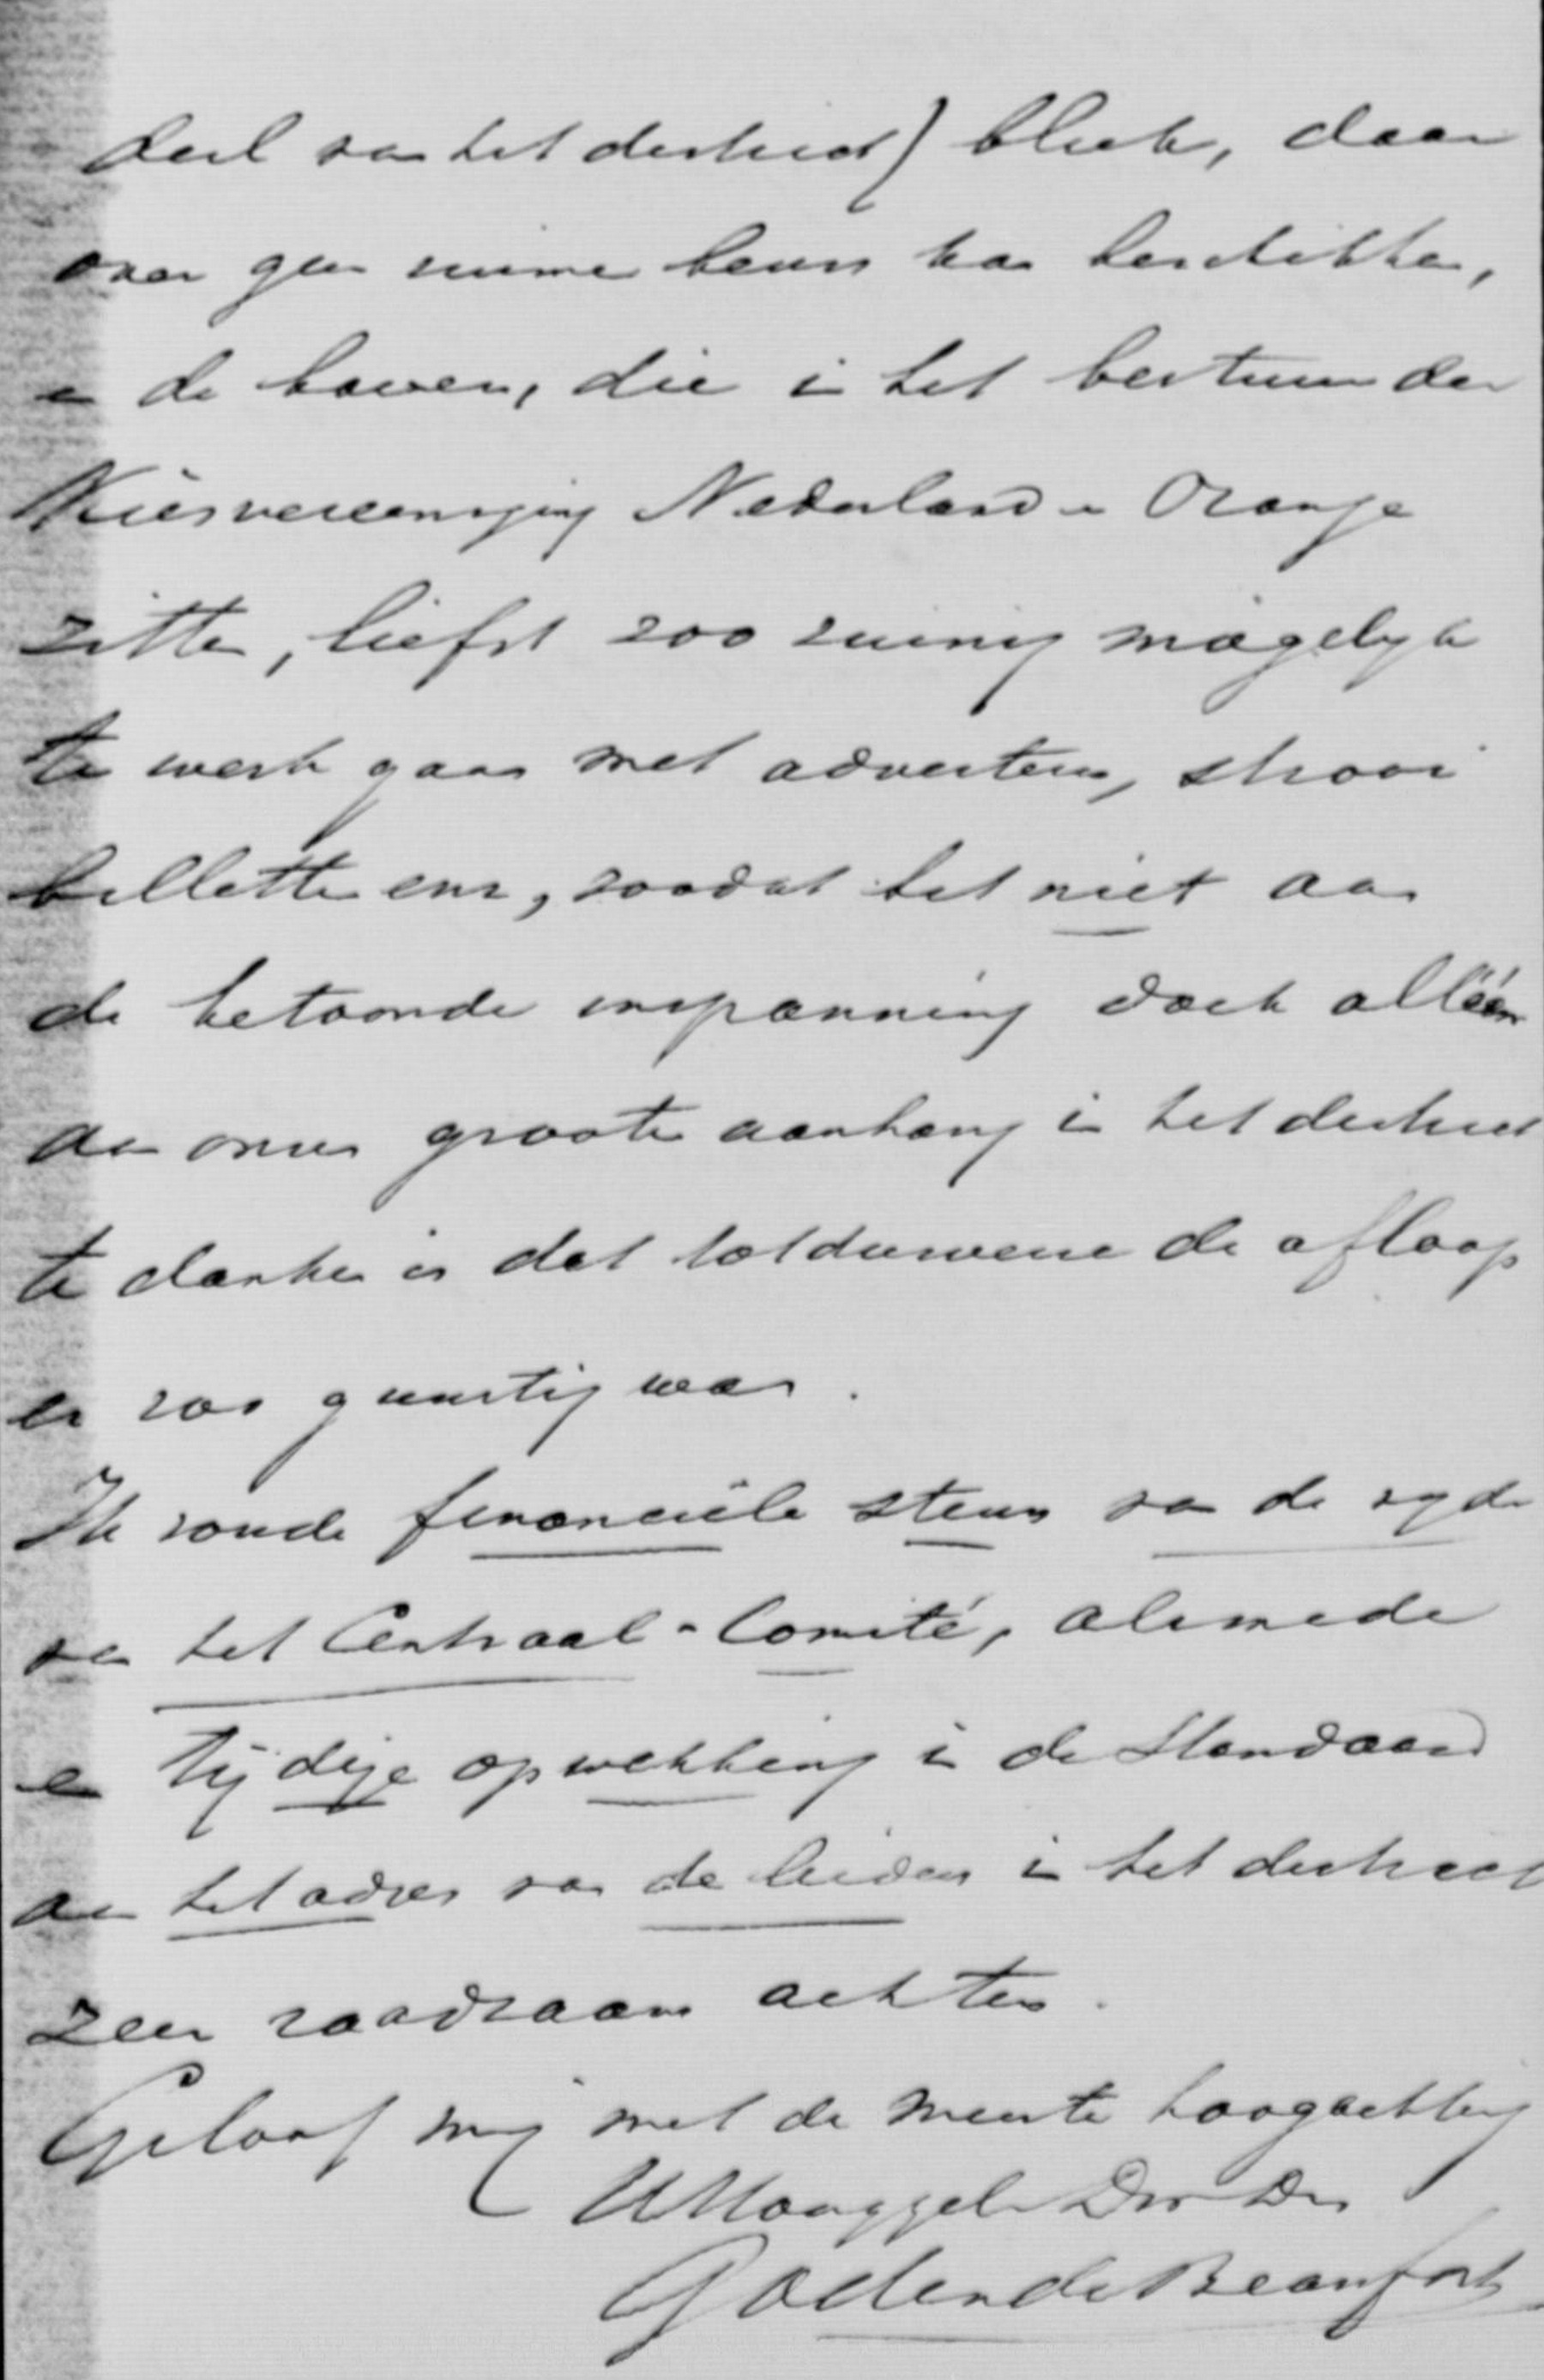 deel van het district) bleek, daar
over geen ruime beurs kan beschikken,
en de heeren, die in het bestuur der
Kiesvereeniging Nederland en Oranje
zitten, liefst zoo zuinig mogelijk
te werk gaan met advertenz, strooi
billetten enz, zoodat het niet aan
de betoonde inspanning doch alléén
aan onzen grooten aanhang in het district
te danken is dat totdusverre de afloop
er zoo gunstig was.
Ik zoude financieële steun van de zijde
van het Centraal-Comité, alsmede
en tijdige opwekking in de Standaard
aan het adres van de leiders in het district
zeer raadzaam achten.
Geloof mij met de meeste hoogachting
UHooggeb Dw Dr
de Beaufort